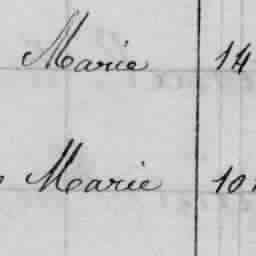 Marie 14
Marie 10